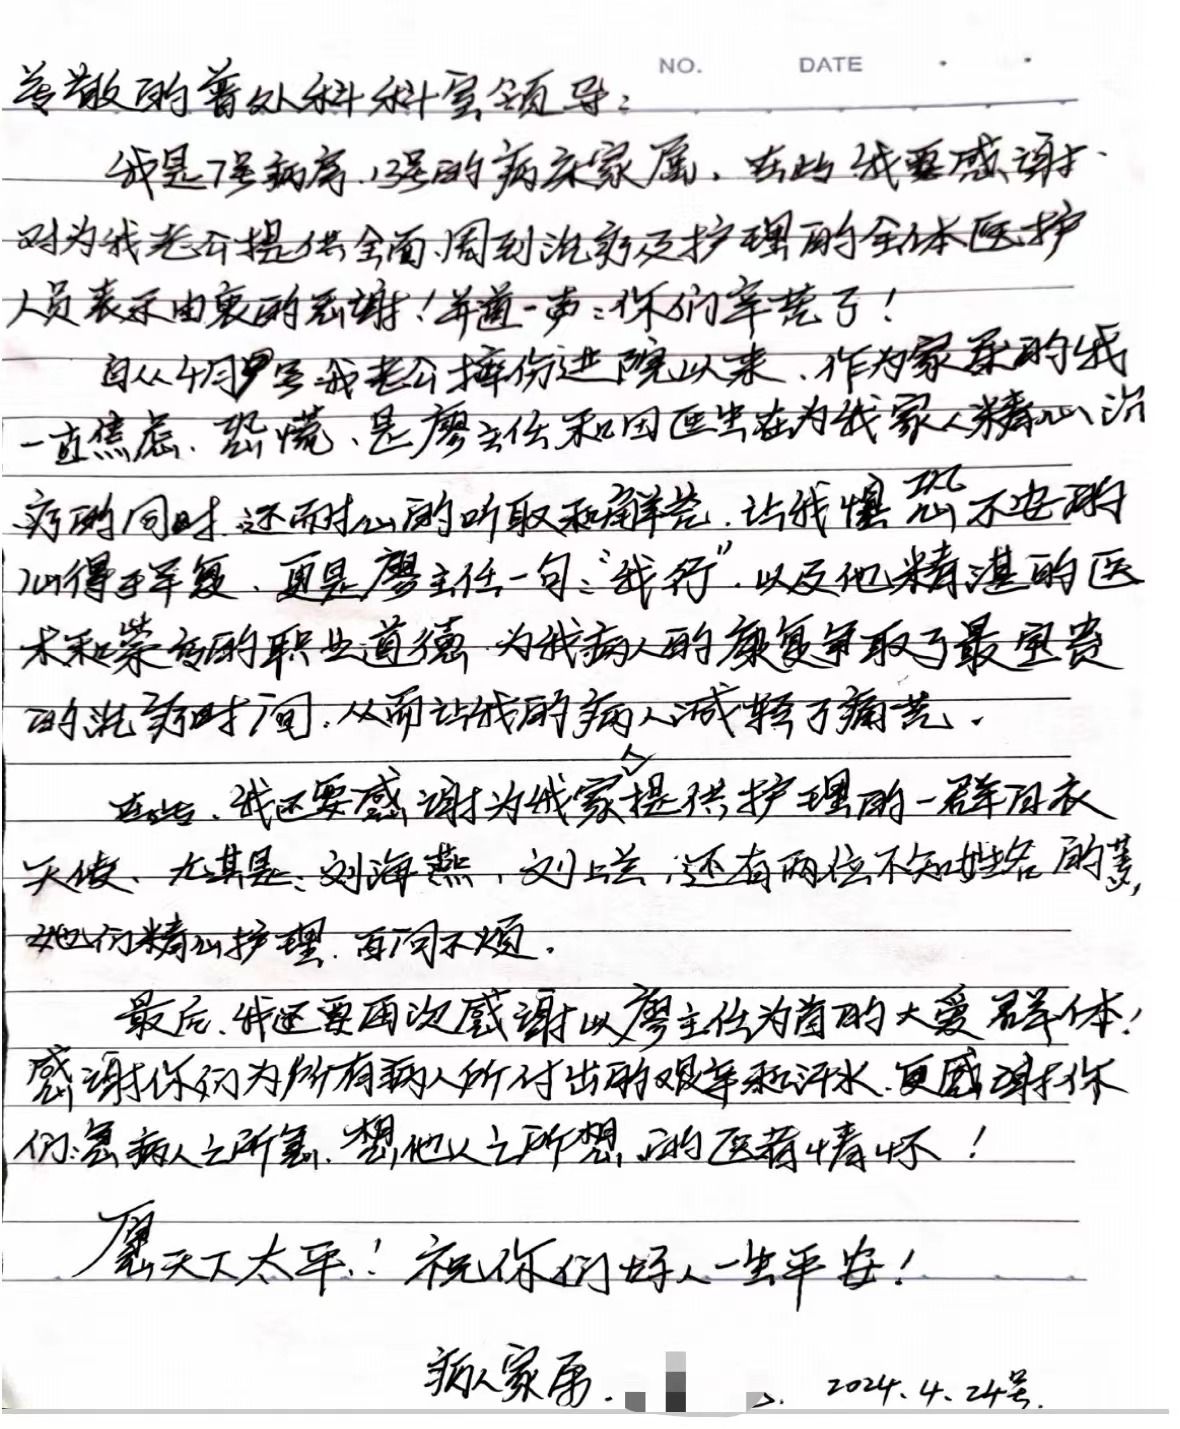 NO. DATE
尊敬的普外科科室领导：
我是7号病房、13号的病床家属，在此我要感谢
对为我老公提供全面、周到治疗及护理的全体医护
人员表示由衷的感谢！并道一声：你们辛苦了！
自从4月9号我老公摔伤进院以来，作为家属的我
一直焦虑、恐慌、是廖主任和田医生在为我家人精心治
疗的同时，还耐心的听取和解答，让我惧恐不安的
心得于平复，更是廖主任一句："我行"，以及他精湛的医
术和崇高的职业道德，为我病人的康复争取了最宝贵
的治疗时间，从而让我的病人减轻了痛苦。
在此，我还要感谢为我家人提供护理的一群白衣
天使、尤其是：刘海燕，刘上兰，还有两位不知姓名的
她们精心护理，百问不烦。
最后，我还要再次感谢以廖主任为首的大爱群体！
感谢你们为所有病人所付出的艰辛和汗水，更感谢你
们：急病人之所急、想他人之所想、的医者情怀！
愿天下太平！祝你们好人一生平安！
病人家属． 2024.4.24号.